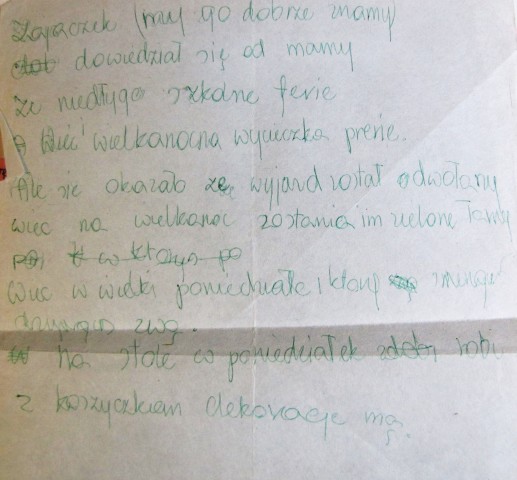 Zajączek (my go dobrze znamy)
dowiedział się od mamy
że niedługo szkolne ferie
Więc wielkanocna wycieczka
Ale się okazało że wyjazd został odwołany
więc na wielkanoc zostania im zielone
w którym po
Więc w wielki poniedziałek
zwą.
na stole co poniedziałek robi
z koszyczkiem dekoracje mą